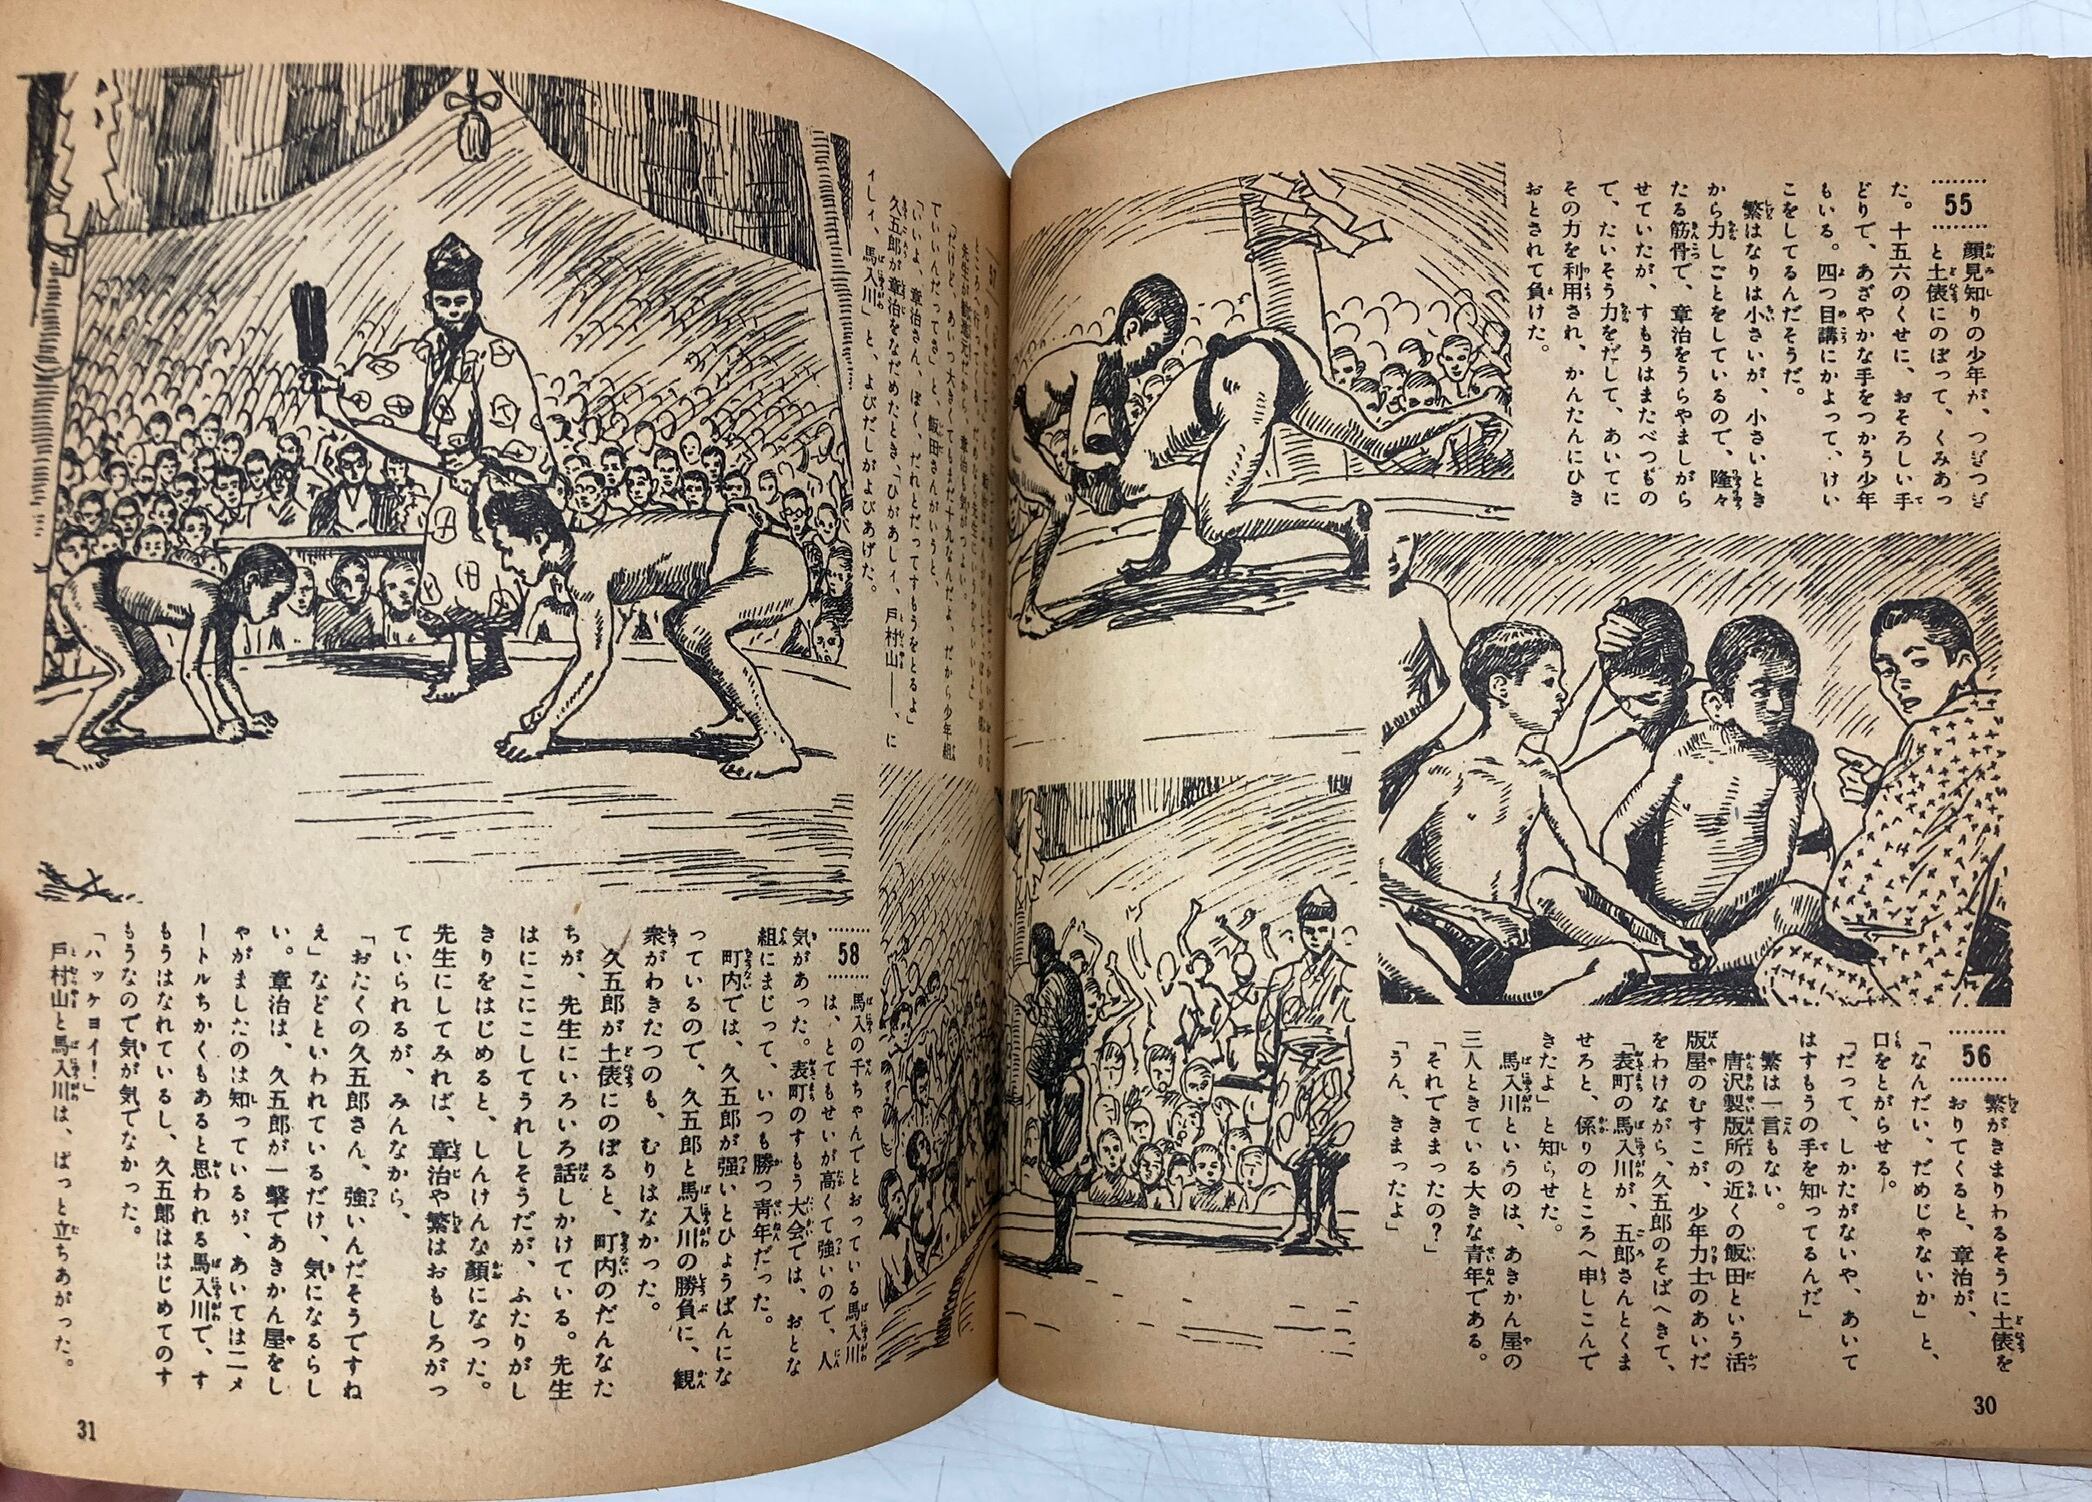 55
顔見知りの少年が、つぎつぎ
と土俵にのぼって、くみあっ
た。十五六のくせに、おそろしい手
どりで、あざやかな手をつかう少年
もいる。四つ目講にかよって、けい
こをしてるんだそうだ。
繁はなりは小さいが、小さいとき
から力しごとをしているので、隆々
たる筋骨で、章治をうらやましがら
せていたが、すもうはまたべつもの
で、たいそう力をだして、あいてに
その力を利用され、かんたんにひき
おとされて負けた。
56
繁がきまりわるそうに土俵を
おりてくると、章治が、
「なんだい、だめじゃないか」と、
口をとがらせる。
「だって、しかたがないや、あいて
はすもうの手を知ってるんだ」
繁は一言もない。
唐沢製版所の近くの飯田という活
版屋のむすこが、少年力士のあいだ
をわけながら、久五郎のそばへきて、
「表町の馬入川が、五郎さんとくま
せろと、係りのところへ申しこんで
きたよ」と知らせた。
馬入川というのは、あきかん屋の
三人ときている大きな青年である。
「それできまったの？」
「うん、きまったよ」
30
57
先生が勧進元だから、章治も鼻がつよい。
「だけど、あいつ大きくてもまだ十九なんだよ、だから少年組
でいいんだってさ」と、飯田さんがいうと、
「いいよ、章治さん、ぼく、だれとだってすもうをとるよ」
久五郎が章治をなだめたとき、「ひがあしィ、戸村山――、に
ィしィ、馬入川」と、よびだしがよびあげた。
58
馬入の千ちゃんでとおっている馬入川
は、とてもせいが高くて強いので、人
気があった。表町のすもう大会では、おとな
組にまじって、いつも勝つ青年だった。
町内では、久五郎が強いとひょうばんにな
っているので、久五郎と馬入川の勝負に、観
衆がわきたつのも、むりはなかった。
久五郎が土俵にのぼると、町内のだんなた
ちが、先生にいろいろ話しかけている。先生
はにこにこしてうれしそうだが、ふたりがし
きりをはじめると、しんけんな顔になった。
先生にしてみれば、章治や繁はおもしろがっ
ていられるが、みんなから、
「おたくの久五郎さん、強いんだそうですね
え」などといわれているだけ、気になるらし
い。章治は、久五郎が一撃であきかん屋をし
やがましたのは知っているが、あいては二メ
ートルちかくもあると思われる馬入川で、す
もうはなれているし、久五郎ははじめてのす
もうなので気が気でなかった。
「ハッケヨイ！」
戸村山と馬入川は、ぱっと立ちあがった。
31